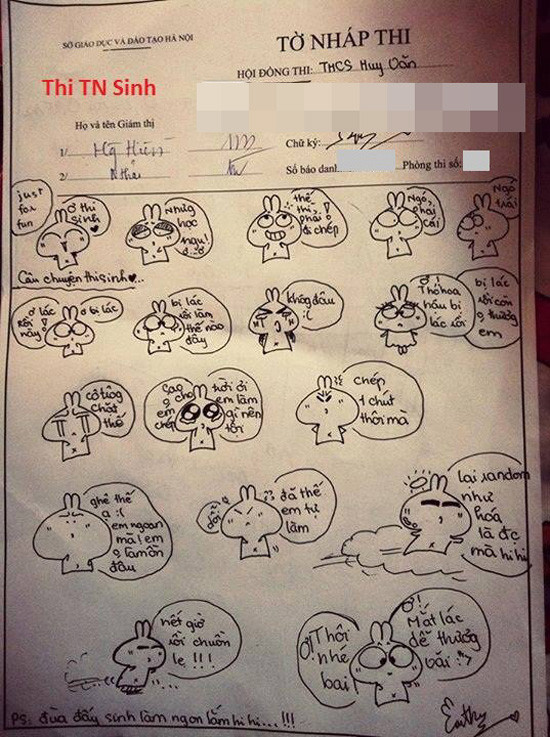 SỞ GIÁO DỤC VÀ ĐÀO TẠO HÀ NỘI
TỜ NHÁP THI
HỘI ĐỒNG THI: THCS Huy Văn
Thi TN Sinh
Họ và tên Giám thị
1/
Chữ ký:
2/
Số báo danh
Phòng thi số:
just
for
fun
Ơ thi
sinh
Nhưng
học
ngu!
thế
thì
phải
đi chép
Ngó
phải
cái
Ngó
trái
Câu chuyện thi sinh ...
Ơ lác
rồi
này!
Ơ bị lác
bị lác
rồi làm
thế nào
đây
không đâu
:(
Ơ!
Thỏ hoa
hậu bị
lác rồi
bị lác
rồi còn
thương
em
cô tông
chặt
thế
Sao
cho
em
chép
trời ơi
em làm
gì nên
tội
chép
1 chút
thôi mà
ghê thế
ạ :(
em ngoan
mà! em
làm ồn
đâu
dỗi
đã thế
em tự
làm
lại random
như
hoá
là đc
mà hi hi
hết giờ
rồi chuồn
le !!!
Ơ! Thôi
nhé
bai!
Ơ!
Mắt lác
dễ thương
vãi :">
PS: đùa đấy sinh làm ngon lắm hi hi...!!!